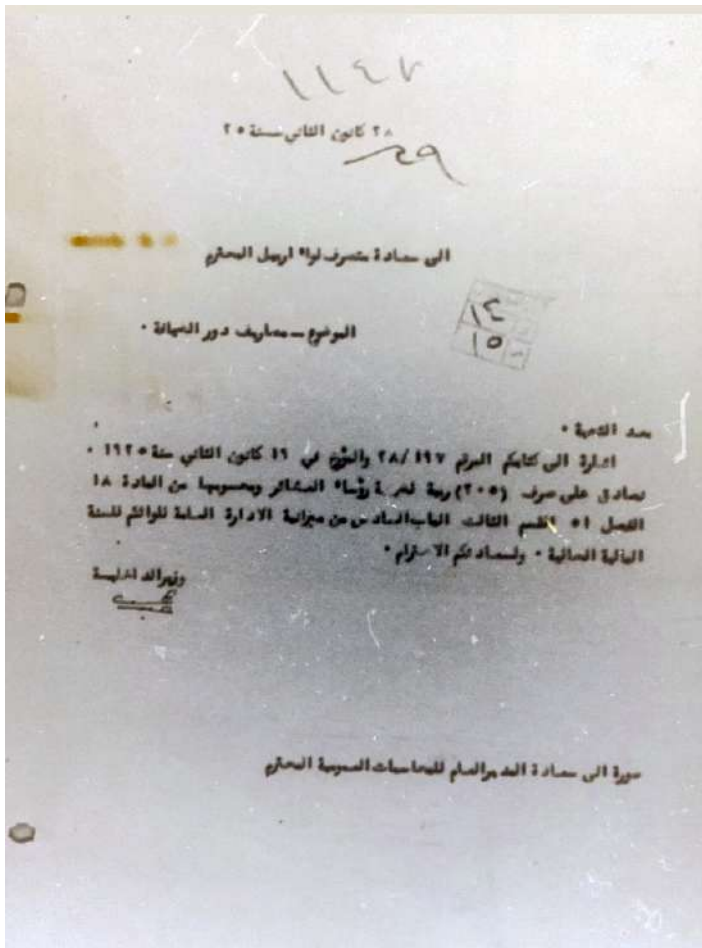 ١١٤٧
٢٨ كانون الثاني سنة ٢٥
٢٩
الى سعادة متصرف لواء اربيل المحترم
١٤
١٥
الموضوع ــ مصاريف دور الضيافة ٠
بعد التحية ٠
اشارة الى كتابكم المرقم ٢٨/١٩٧ والمؤرخ في ١٩ كانون الثاني سنة ١٩٢٥ ٠
نصادق على صرف (٢٠٥) ربية رؤساء العشائر ومحسوبها من المادة ١٨
الفصل ٥١ القسم الثالث الباب السادس من ميزانية الادارة العامة للسنة
المالية الحالية ٠ ولسعادتكم الاحترام ٠
وزير الداخلية
صورة الى سعادة المدير العام للمحاسبات العمومية المحترم